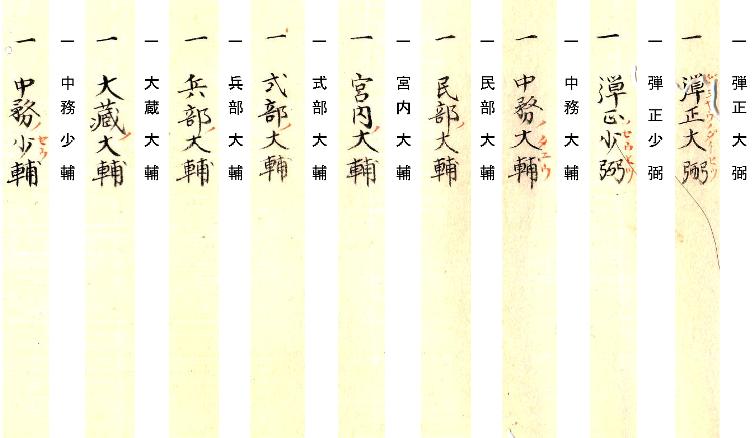 一 弾正大弼
一 弾正大弼
一 弾正少弼
一 弾正少弼
一 中務大輔
一 中務大輔
一 民部大輔
一 民部大輔
一 宮内大輔
一 宮内大輔
一 式部大輔
一 式部大輔
一 兵部大輔
一 兵部大輔
一 大蔵大輔
一 大藏大輔
一 中務少輔
一 中務少輔